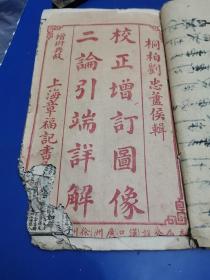 桐柏劉忠藎侯輯
校正增訂圖像
二論引端詳解
增附典故
上海章福記書